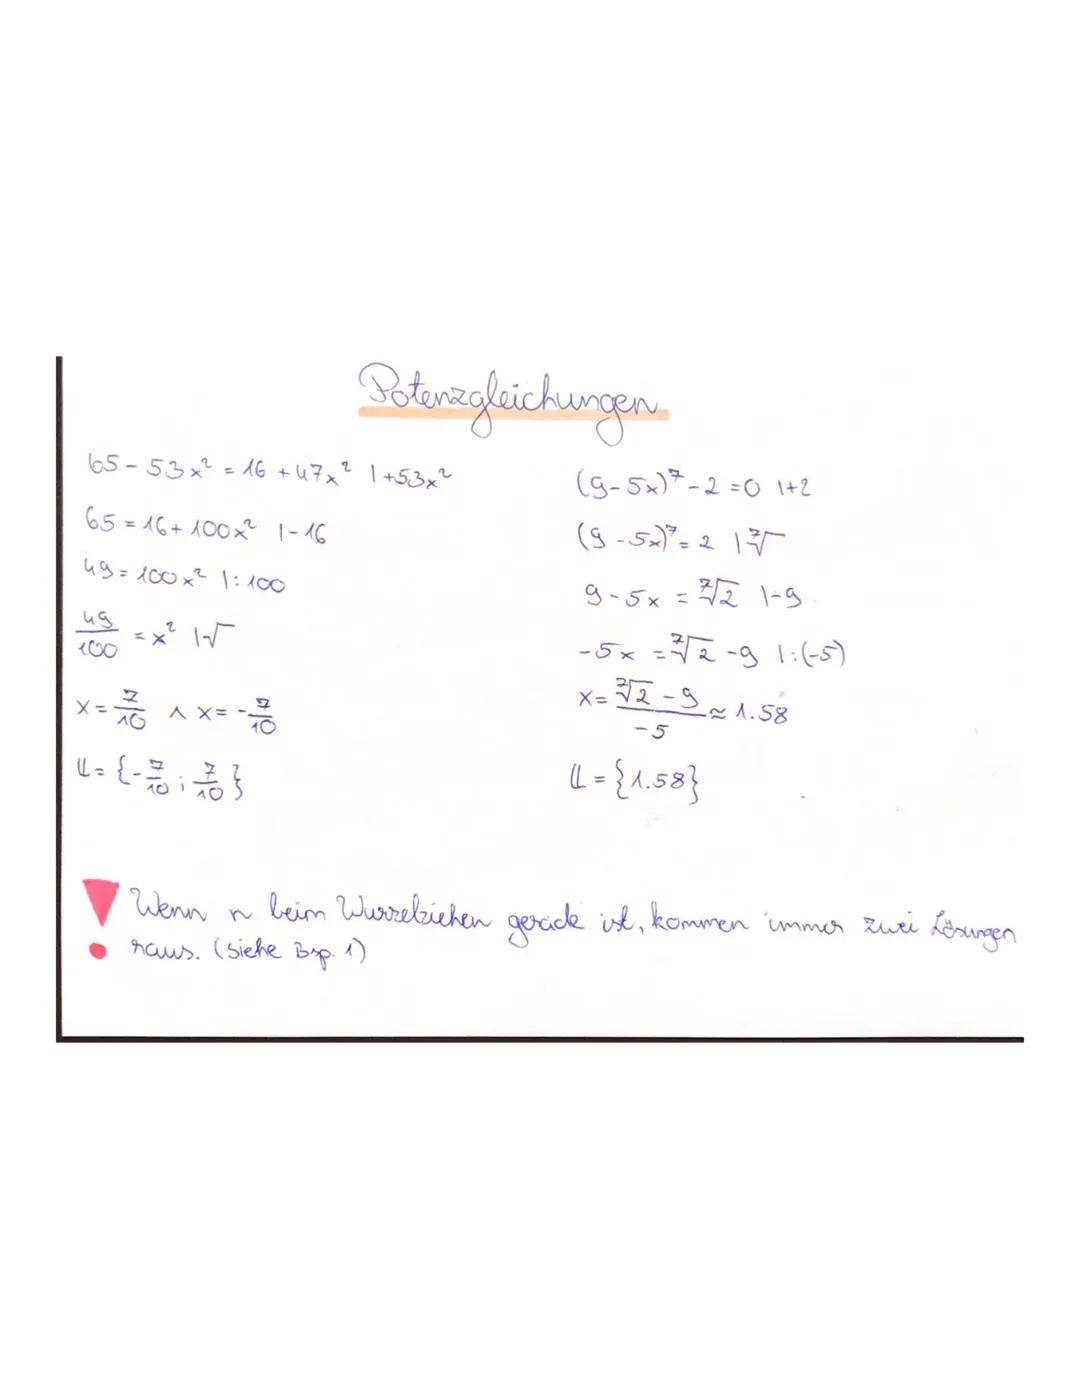 Potenzgleichungen
65 - 53x² = 16 + 47x² | +53x²
65 = 16 + 100x² | -16
49 = 100x² | : 100
49/100 = x² | √
x = 7/10 ∧ x = -7/10
𝕃 = {-7/10 ; 7/10}
(9-5x)⁷ - 2 = 0 | +2
(9-5x)⁷ = 2 | ⁷√
9-5x = ⁷√2 | -9
-5x = ⁷√2 - 9 | : (-5)
x = (⁷√2 - 9)/-5 ≈ 1.58
𝕃 = {1.58}
Wenn n beim Wurzelziehen gerade ist, kommen immer zwei Lösungen
raus. (siehe Bsp. 1)